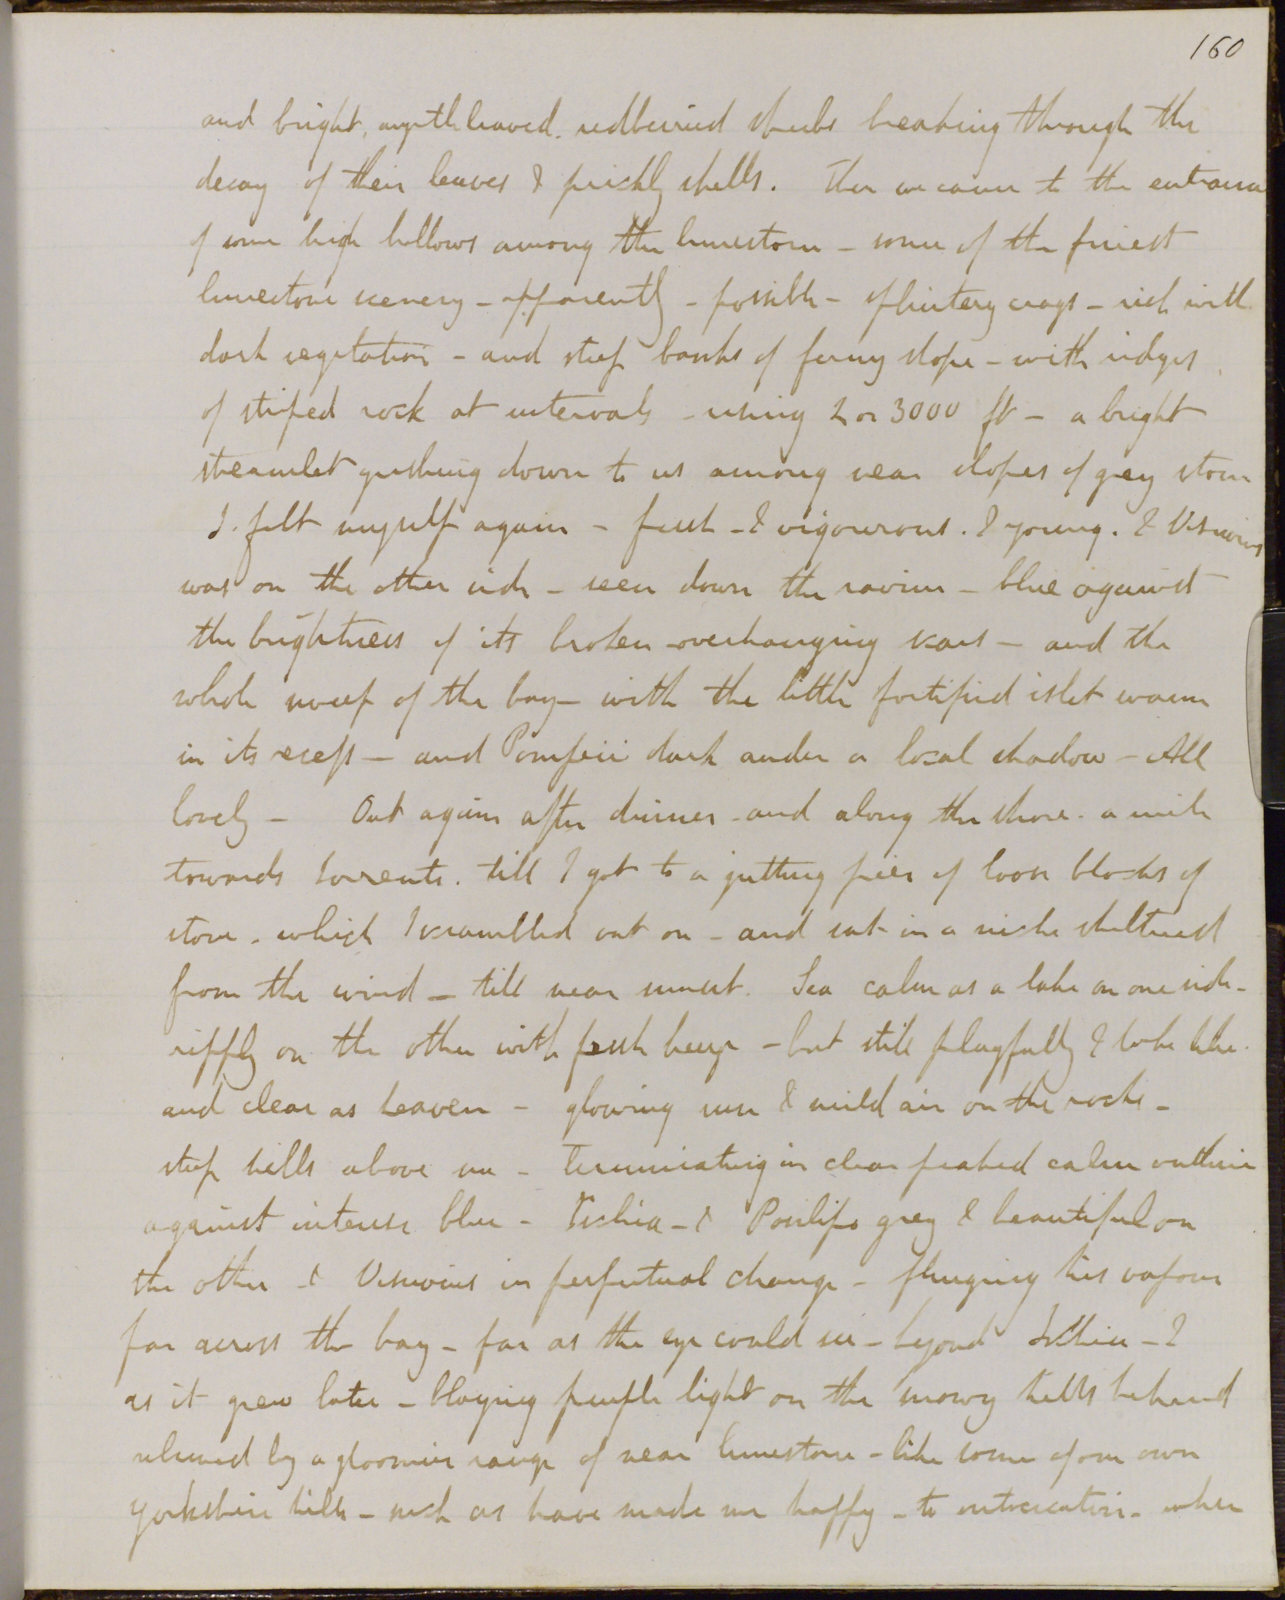 160
and bright, myrtle leaved. redberried shrubs breaking through the
decay of their leaves & prickly shells. Then we came to the entrance
of some high hollows among the limestone - some of the finest
limestone scenery - apparently - possible - splintery crags - rich with
dark vegetation - and steep banks of ferny slope - with ridges
of striped rock at intervals - rising 2 or 3000 ft - a bright
streamlet gushing down to us among near slopes of grey stone
I felt myself again - fresh - & vigourous. & young. & Vesuvius
was on the other side - seen down the ravine - blue against
the brightness of its broken overhanging scars - and the
whole sweep of the bay - with the little fortified islet warm
in its recess - and Pompeii dark under a local shadow - All
lovely - Out again after dinner - and along the shore. a mile
towards Sorrento. till I got to a jutting pier of loose blocks of
stone - which I scrambled out on - and sat in a niche sheltered
from the wind - till near sunset. Sea calm as a lake on one side -
ripply on the other with fresh breeze - but still playfully & lake like.
and clear as heaven - glowing sun & mild air on the rocks -
steep hills above me - Terminating in clear peaked calm outline
against intense blue - Ischia - & Posilipo grey & beautiful on
the other & Vesuvius in perpetual change - flinging his vapour
far across the bay - far as the eye could see - beyond Ischia - &
as it grew later - blazing purple light on the snowy hills behind
relieved by a gloomier range of near limestone - like some of our own
Yorkshire hills - such as have made me happy - to intoxication - when